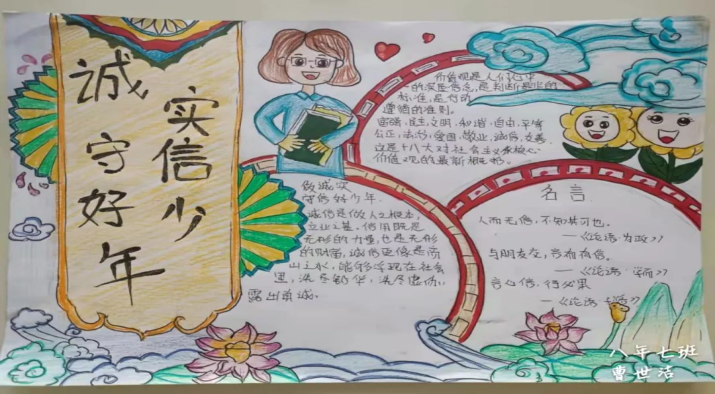 诚实
守信
好少
年
价值观是人们心中
的深层信念,是判断是非的
标准,是行动
遵循的准则。
富强,民主,文明,和谐,自由,平等
公正,法治,爱国,敬业,诚信,友善,
这是十八大对社会主义核心
价值观的最新概括。
做诚实
守信好少年.
诚信是做人之根本,
立业之基。信用既是
无形的力量,也是无形
的财富,诚信更像是高
山之水,能够浮现在社会
里,洗尽铅华,洗尽虚伪,
露出真诚。
名言
人而无信,不知其可也。
—《论语·为政》
与朋友交,言而有信。
—《论语·学而》
言必信,行必果
—《论语·子路》
八年七班
曹世洁